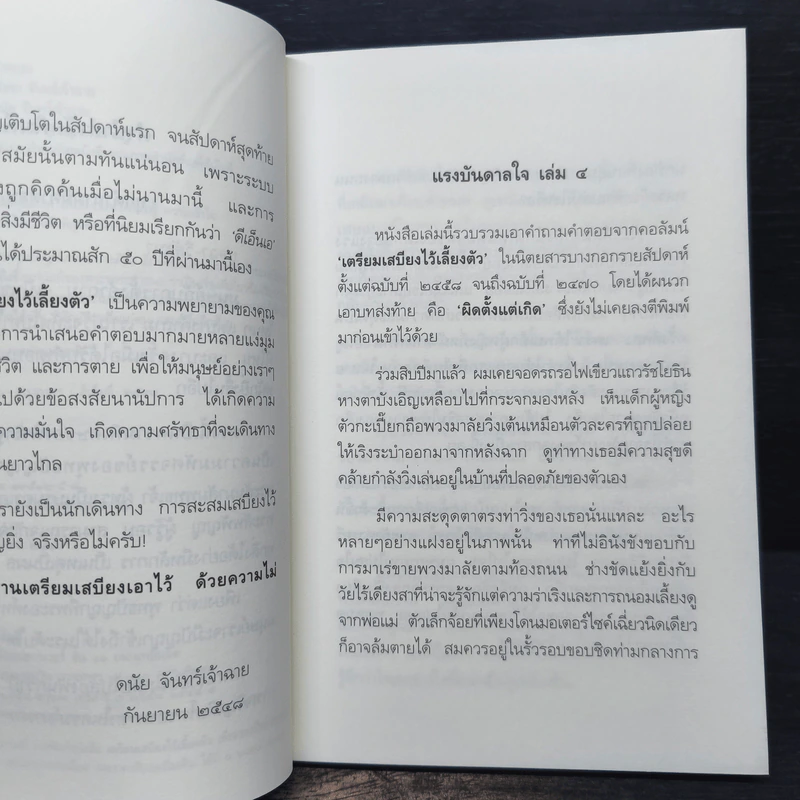 เติบโตในสัปดาห์แรก จนสัปดาห์สุดท้าย
สมัยนั้นตามทันแน่นอน เพราะระบบ
ถูกคิดค้นเมื่อไม่นานมานี้ และการ
สิ่งมีชีวิต หรือที่นิยมเรียกกันว่า ‘ดีเอ็นเอ’
ได้ประมาณสัก ๕๐ ปีที่ผ่านมานี้เอง
ไว้เลี้ยงตัว’ เป็นความพยายามของคุณ
การนำเสนอคำตอบมากมายหลายแง่มุม
และการตาย เพื่อให้มนุษย์อย่างเราๆ
ไปด้วยข้อสงสัยนานัปการ ได้เกิดความ
ความมั่นใจ เกิดความศรัทธาที่จะเดินทาง
ยาวไกล
รายังเป็นนักเดินทาง การสะสมเสบียงไว้
ยิ่ง จริงหรือไม่ครับ!
านเตรียมเสบียงเอาไว้ ด้วยความไม่
ดนัย จันทร์เจ้าฉาย
กันยายน ๒๕๔๘
แรงบันดาลใจ เล่ม ๔
หนังสือเล่มนี้รวบรวมเอาคำถามคำตอบจากคอลัมน์
‘เตรียมเสบียงไว้เลี้ยงตัว’ ในนิตยสารบางกอกรายสัปดาห์
ตั้งแต่ฉบับที่ ๒๔๕๘ จนถึงฉบับที่ ๒๔๗๐ โดยได้ผนวก
เอาบทส่งท้าย คือ ‘ผิดตั้งแต่เกิด’ ซึ่งยังไม่เคยลงตีพิมพ์
มาก่อนเข้าไว้ด้วย
ร่วมสิบปีมาแล้ว ผมเคยจอดรถรอไฟเขียวแถวรัชโยธิน
หางตาบังเอิญเหลือบไปที่กระจกมองหลัง เห็นเด็กผู้หญิง
ตัวกะเปี๊ยกถือพวงมาลัยวิ่งเต้นเหมือนตัวละครที่ถูกปล่อย
ให้เริงระบำออกมาจากหลังฉาก ดูท่าทางเธอมีความสุขดี
คล้ายกำลังวิ่งเล่นอยู่ในบ้านที่ปลอดภัยของตัวเอง
มีความสะดุดตาตรงท่าวิ่งของเธอนั่นแหละ อะไร
หลายๆอย่างแฝงอยู่ในภาพนั้น ท่าทีไม่อินังขังขอบกับ
การมาเร่ขายพวงมาลัยตามท้องถนน ช่างขัดแย้งยิ่งกับ
วัยไร้เดียงสาที่น่าจะรู้จักแต่ความร่าเริงและการถนอมเลี้ยงดู
จากพ่อแม่ ตัวเล็กจ้อยที่เพียงโดนมอเตอร์ไซค์เฉี่ยวนิดเดียว
ก็อาจล้มตายได้ สมควรอยู่ในรั้วรอบขอบชิดท่ามกลางการ